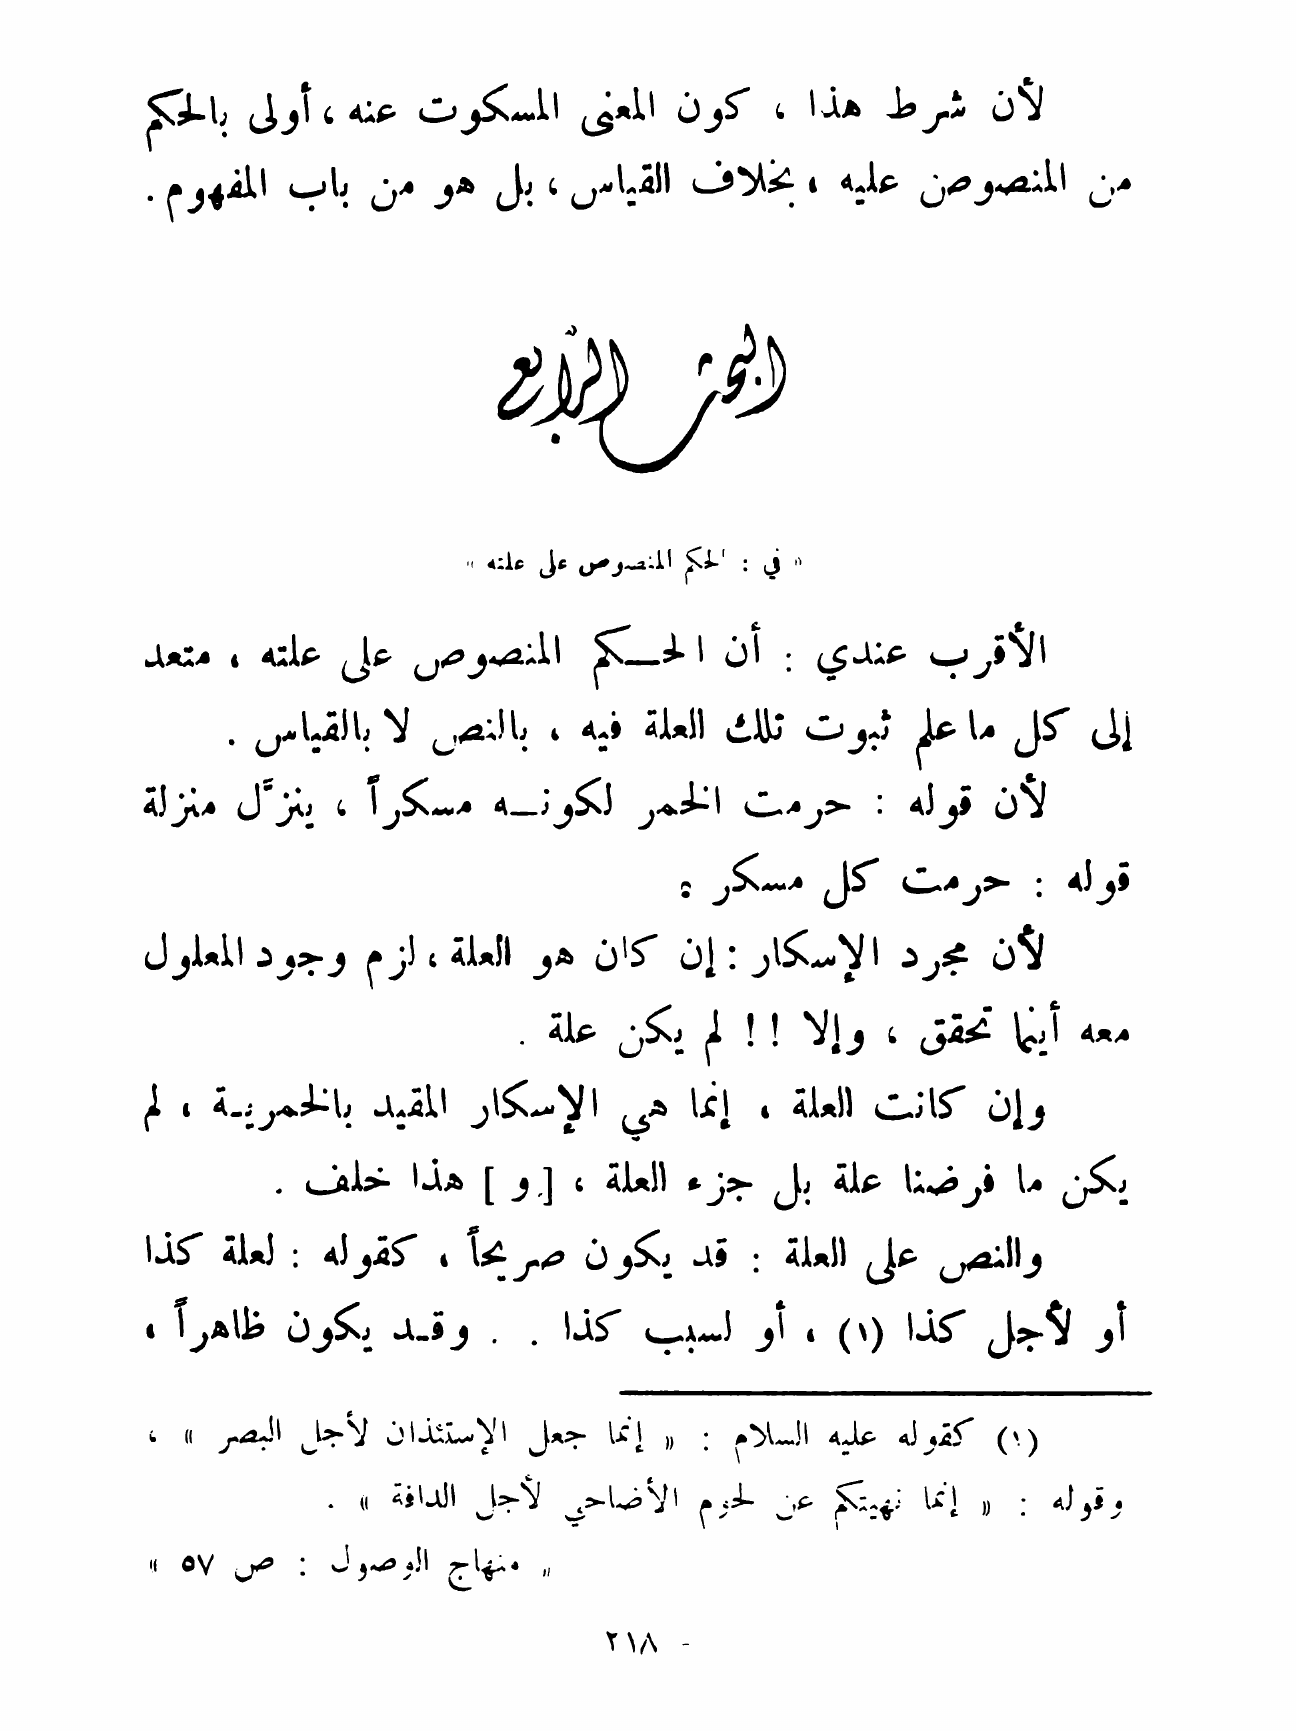 لأن شرط هذا ، كون المعنى المسكوت عنه ، أولى بالحكم
من المنصوص عليه ، بخلاف القياس ، بل هو من باب المفهوم .
البحث الرّابع
« في : الحكم المنصوص على علته »
الأقرب عندي : أن الحـكم المنصوص على علته ، متعد
إلى كل ما علم ثبوت تلك العلة فيه ، بالنص لا بالقياس .
لأن قوله : حرمت الخمر لكونـه مسكراً ، ينزَّل منزلة
قوله : حرمت كل مسكر :
لأن مجرد الإسكار : إن كان هو العلة ، لزم وجود المعلول
معه أينما تحقق ، وإلا !! لم يكن علة .
وإن كانت العلة ، إنما هي الإسكار المقيد بالخمريـة ، لم
يكن ما فرضنا علة بل جزء العلة ، [ و ] هذا خلف .
والنص على العلة : قد يكون صريحاً ، كقوله : لعلة كذا
أو لأجل كذا (١) ، أو لسبب كذا . . وقـد يكون ظاهراً ،
(١) كقوله عليه السلام : « إنما جعل الإستئذان لأجل البصر » ،
وقوله : « إنما نهيتكم عن لحوم الأضاحي لأجل الدافة » .
« منهاج الوصول : ص ٥٧ »
- ٢١٨